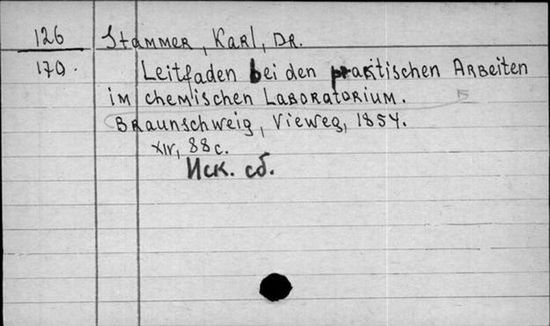 126 Stammer, Karl, Dr.
170. Leitfaden bei den praktischen Arbeiten
im chemischen Laboratorium.
Braunschweig, Vieweg, 1854.
XIV, 88 с.
Иск. сб.